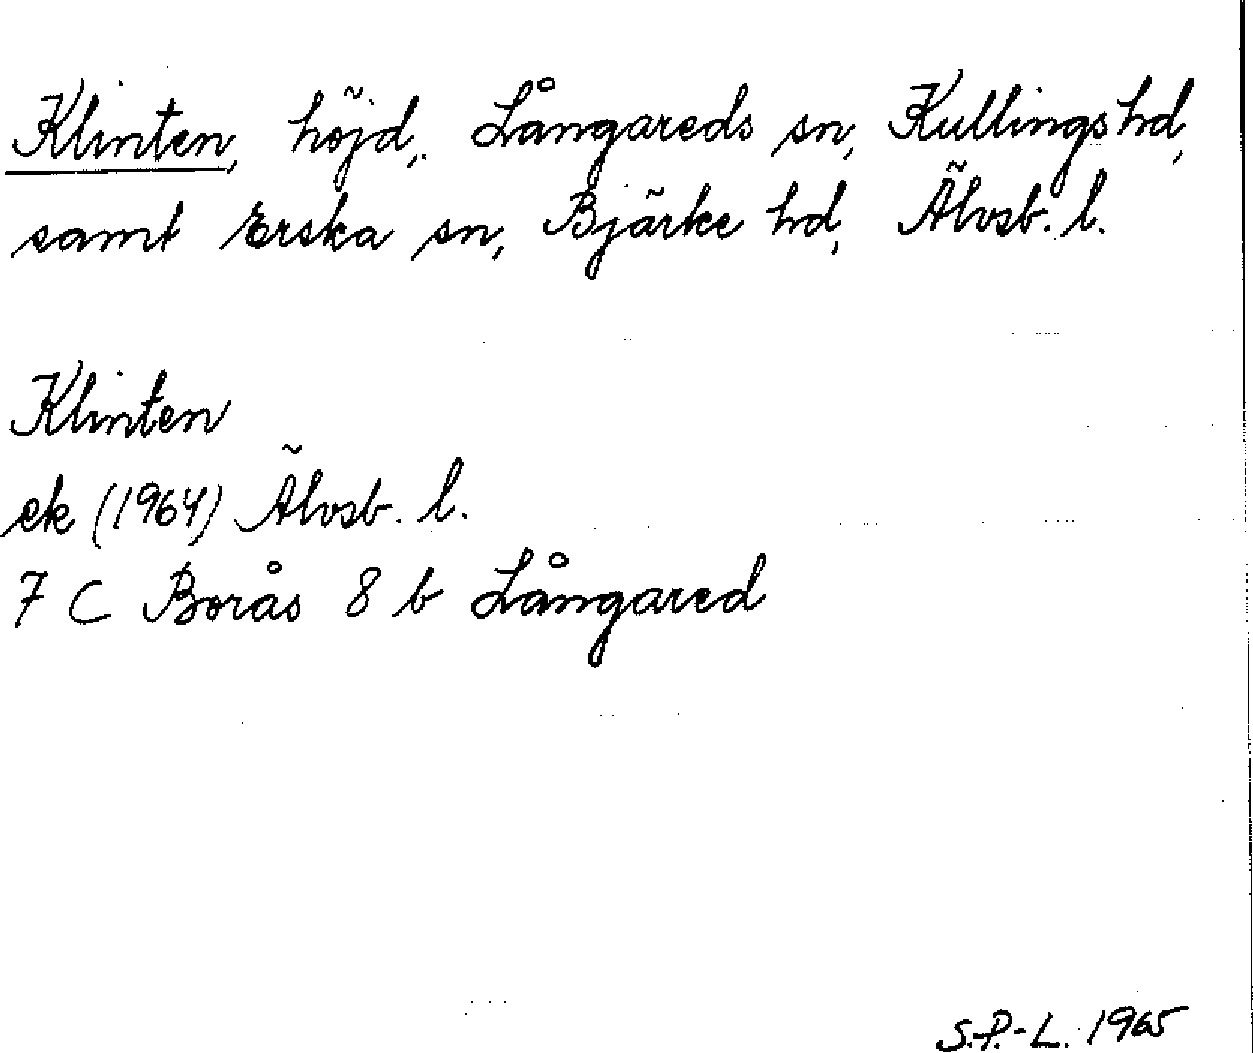 Klinten, höjd, Långareds sn, Kullings hd,
samt Erska sn, Bjärke hd, Älvsb. l.
Klinten
ek (1964) Älvsb. l.
7 C Borås 8 b Långared
S.P.-L. 1965